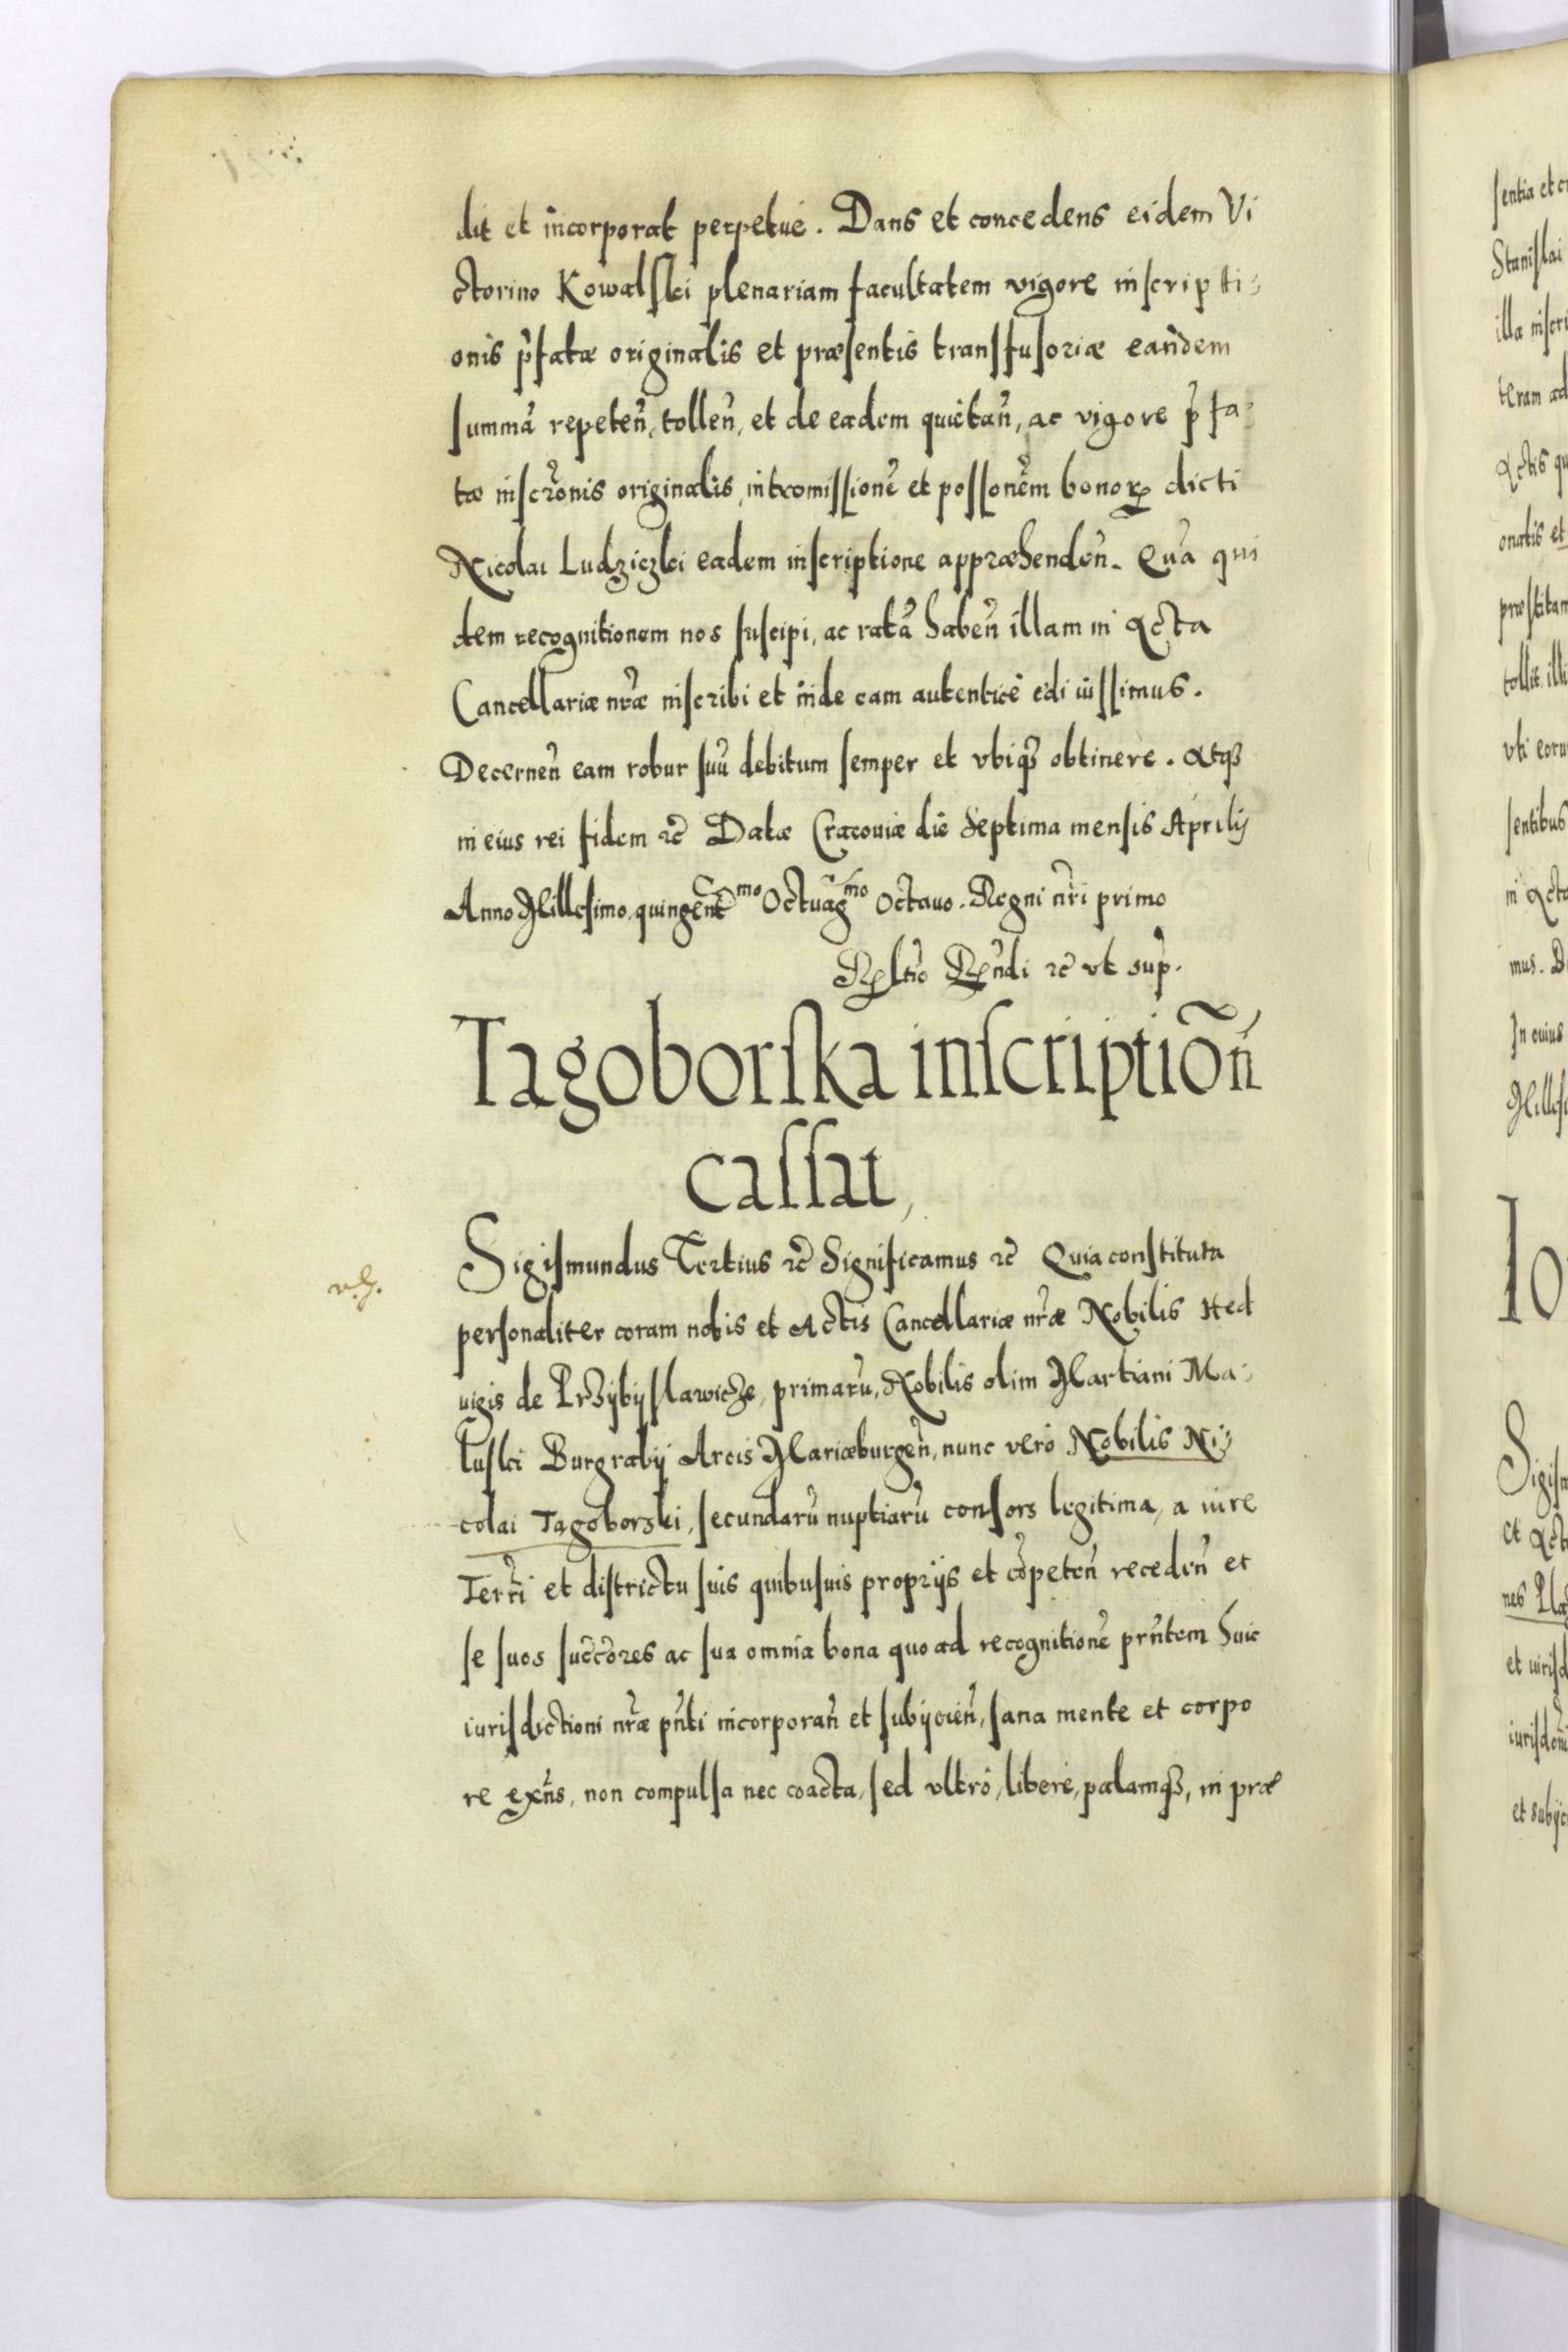 dit et incorporat perpetuè. Dans et concedens eidem Vi
ctorino Kowalski plenariam facultatem vigore inscripti-
onis p̃fatæ originalis et præsentis transfusoriæ eandem
summã repeteñ, tolleñ, et de eadem quietañ, ac vigore p̃fa-
tæ inscr̃onis originalis, intromissionẽ et possonẽm bonoꝝ dicti
Nicolai Ludziczki eadem inscriptione appræhendeñ. Qua qui
dem recognitionem nos suscipi, ac ratã habeñ illam in Acta
Cancellariæ nr̃æ inscribi et inde eam autenticè edi iussimus.
Decerneñ eam robur suũ debitum semper et vbiqȝ obtinere. Atqȝ
in eius rei fidem ꝛc̃ Datæ Cracoviæ die Septima mensis Aprilij
Anno Millesimo, quingent̃mo Octuag̃mo Octauo. Regni nr̃i primo
Rℓtio Rñdi ꝛc̃ vt sup̃.
Tagoborska inscriptioñ
cassat,
Sigismundus Tertius ꝛc̃ Significamus ꝛc̃ Quia constituta
personaliter coram nobis et Actis Cancellariæ nr̃æ Nobilis Hed
uigis de Przÿbÿslawicze, primarũ, Nobilis olim Martiani Ma-
luski Burgrabij Arcis Mariæburgeñ, nunc verò Nobilis Ni-
colai Tagoborski, secundarũ nuptiarũ consors legitima, a iure
Terr̃i et districtu suis quibusuis proprijs et cõpeteñ recedeñ et
se suos succ̃ores ac sua omnia bona quo ad recognitionẽ prñtem huic
iurisdictioni nr̃æ pñti incorporañ et subijcieñ, sana mente et corpo
re exñs, non compulsa nec coacta, sed vltrò, liberè, palamqȝ, in præ